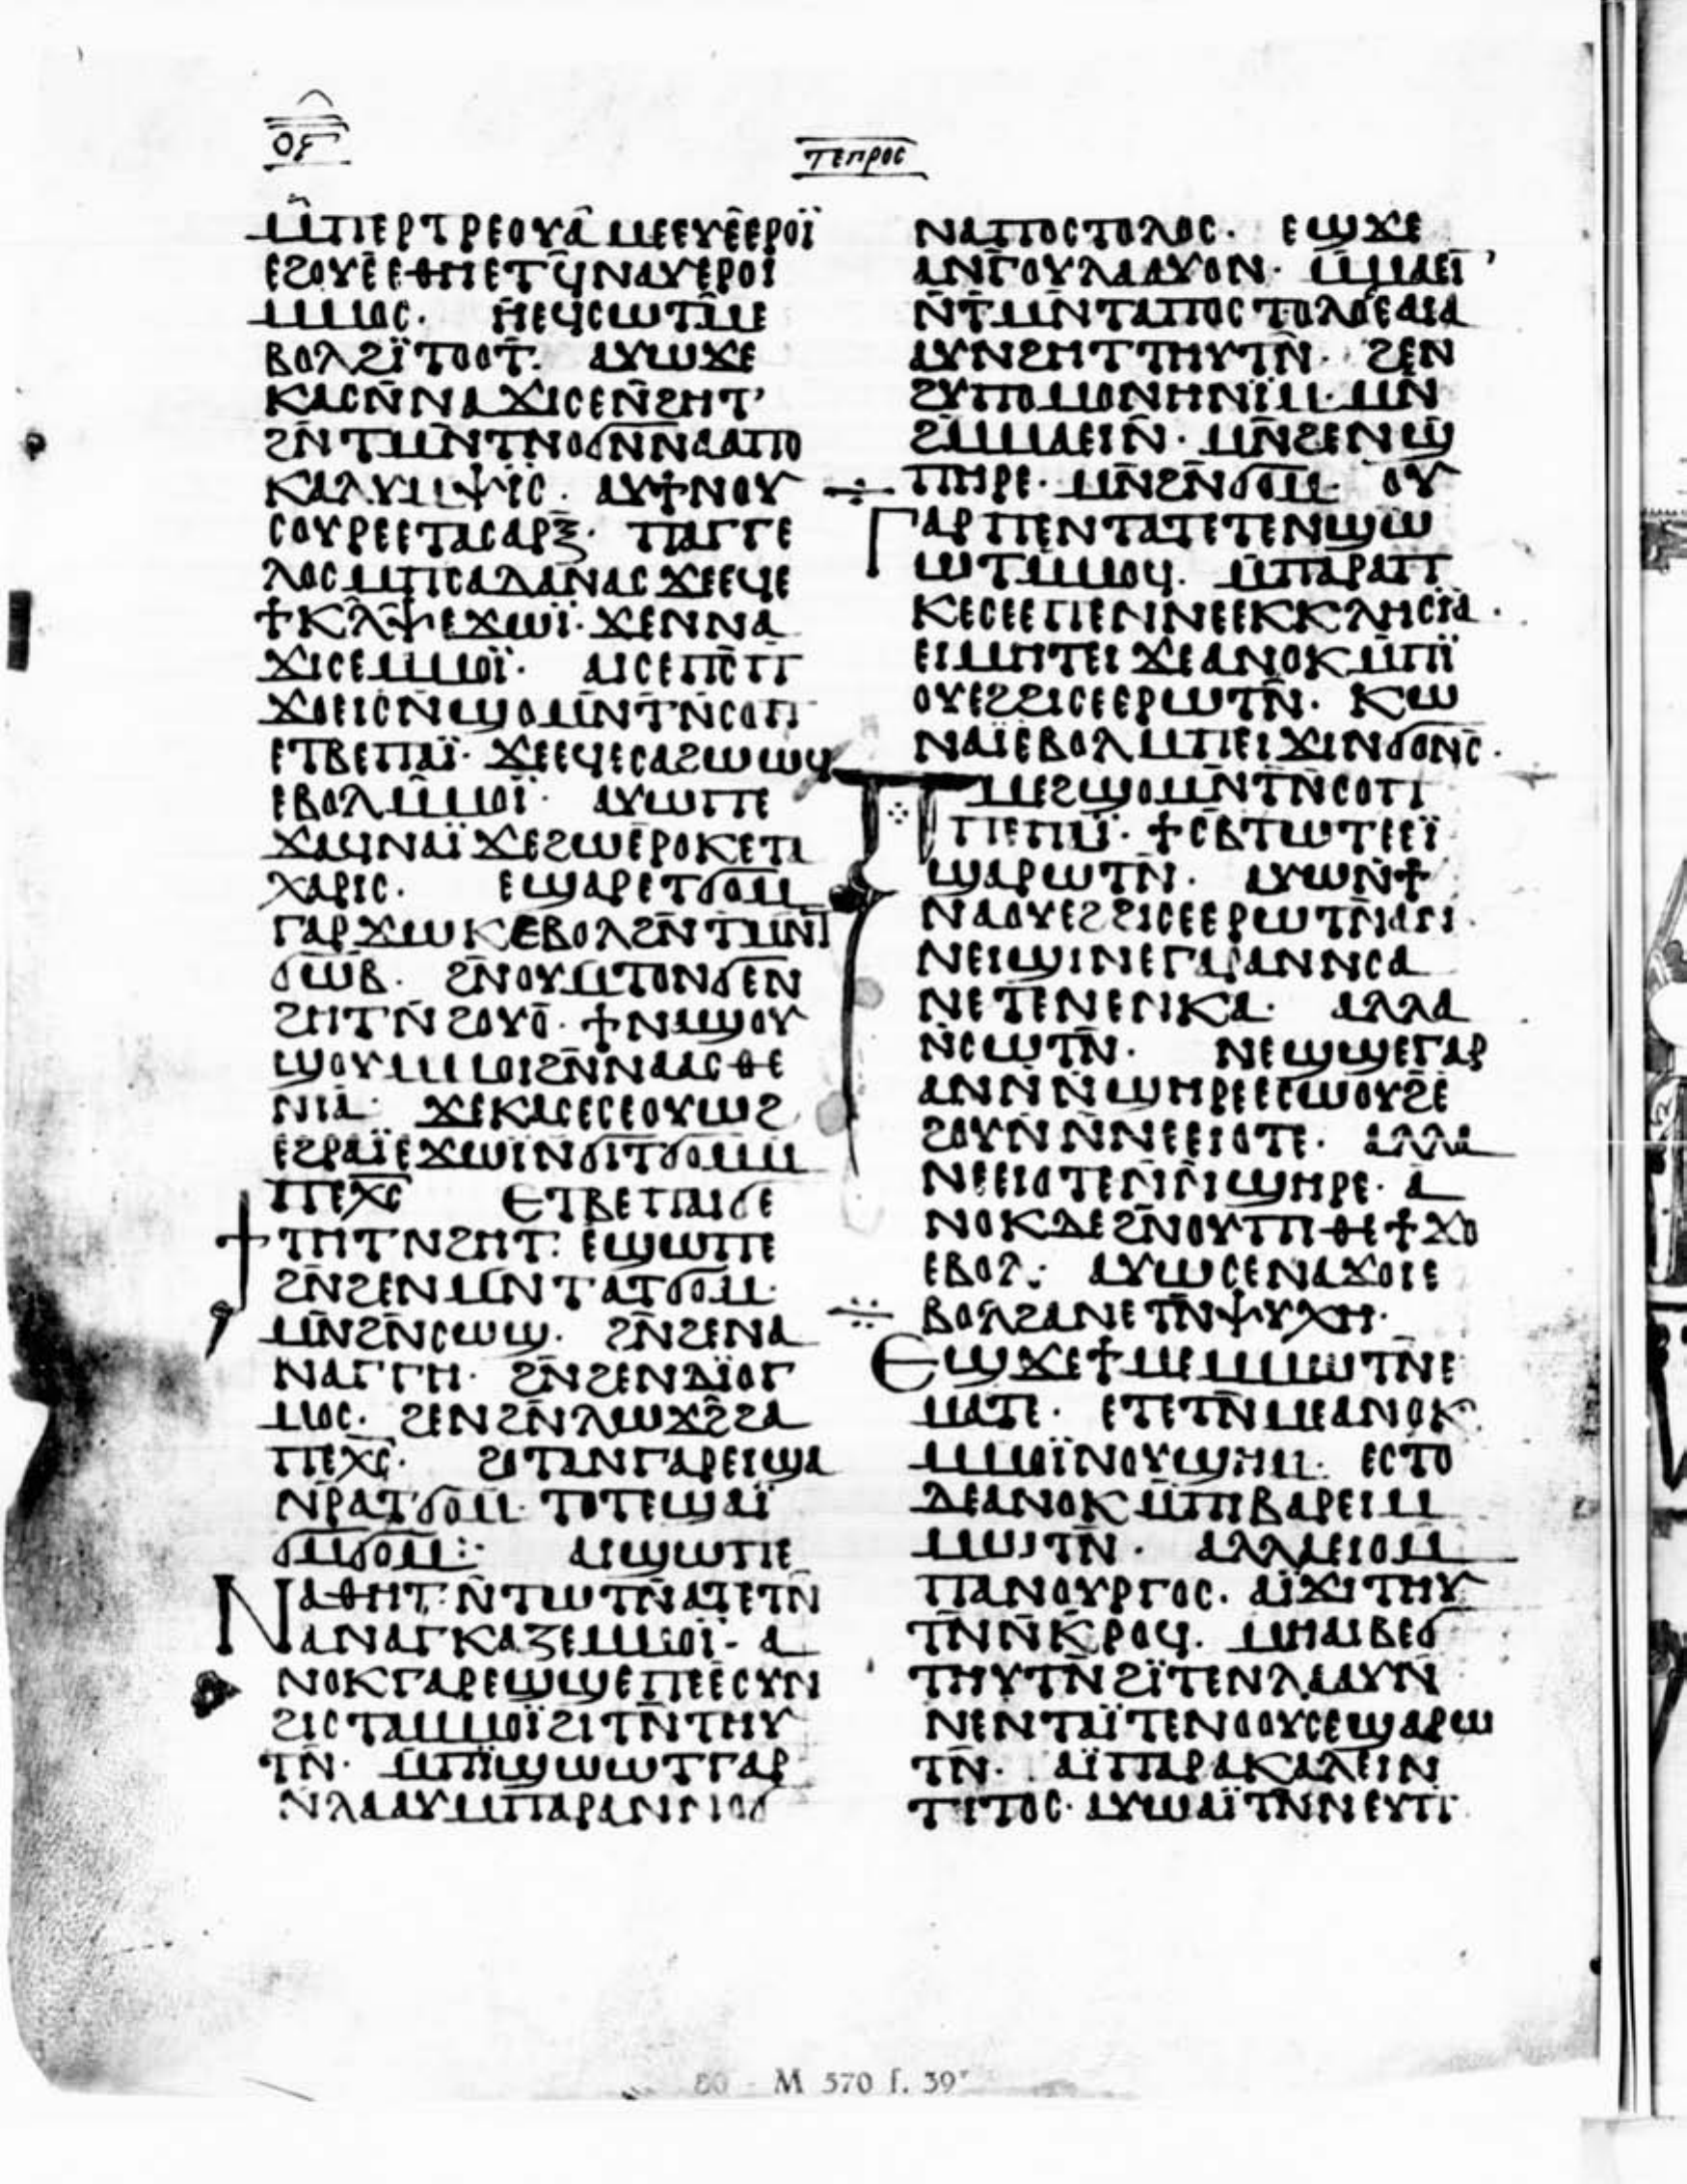 ⲟⲋ
ⲧⲉⲡⲣⲟⲥ
ⲙ̂ⲡⲉⲣⲧⲣⲉⲟⲩⲁ̂ ⲙⲉⲉⲩⲉ̂ⲉⲣⲟⲓ̈
ⲉϩⲟⲩⲉ̂ⲉⲑⲏⲉⲧϥ̄ⲛⲁⲩⲉⲣⲟⲓ
ⲙⲙⲟⲥ. ⲏⲉϥⲥⲱⲧⲙ̂ⲉ
ⲃⲟⲗϩⲓ̈ⲧⲟⲟⲧ̄. ⲁⲩⲱϫⲉ
ⲕⲁⲥⲛ̄ⲛⲁϫⲓⲥⲉⲛ̄ϩⲏⲧ’
ϩⲛ̄ⲧⲙⲛ̄ⲧⲛⲟϭⲛ̄ⲛⲁⲁⲡⲟ
ⲕⲁⲗⲩⲙⲯⲓⲥ. ⲁⲩϯⲛⲟⲩ
ⲥⲟⲩⲣⲉⲉⲧⲁⲥⲁⲣⲝ̄. ⲡⲁⲅⲅⲉ
ⲗⲟⲥⲙ̄ⲡⲥⲁⲇⲁⲛⲁⲥϫⲉⲉϥⲉ
ϯⲕⲗ̂ⲯⲉϫⲱⲓ̈. ϫⲉⲛⲛⲁ
ϫⲓⲥⲉⲙⲙⲟⲓ̈. ⲁⲓⲥⲉⲡⲥ̄ⲡ̄
ϫⲟⲉⲓⲥⲛ̄ϣⲟⲙⲛ̄ⲧⲛ̄ⲥⲟⲡ
ⲉⲧⲃⲉⲡⲁⲓ̈. ϫⲉⲉϥⲉⲥⲁϩⲱⲱϥ
ⲉⲃⲟⲗⲙ̂ⲙⲟⲓ̈. ⲁⲩⲱⲡⲉ
ϫⲁϥⲛⲁⲓ̈ϫⲉϩⲱⲉ̂ⲣⲟⲕⲉⲧⲁ
ⲭⲁⲣⲓⲥ. ⲉϣⲁⲣⲉⲧϭⲟⲙ
ⲅⲁⲣϫⲱⲕⲉⲃⲟⲗϩⲛ̄ⲧⲙⲛ̄ⲧ
ϭⲱⲃ. ϩⲛ̄ⲟⲩⲙⲧⲟⲛϭⲉⲛ
ϩⲏⲧⲛ̄ϩⲟⲩⲟ̄. ϯⲛⲁϣⲟⲩ
ϣⲟⲩⲙⲙⲟⲓϩⲛ̄ⲛⲁⲁⲥⲑⲉ
ⲛⲓⲁ. ϫⲉⲕⲁⲥⲉⲥⲉⲟⲩⲱϩ
ⲉϩⲣⲁⲓ̈ⲉϫⲱⲓ̈ⲛϭⲓⲧϭⲟⲙⲙ̄
ⲡⲉⲭ̄ⲥ̄ ⲉⲧⲃⲉⲡⲁⲓϭⲉ
ϯⲧⲏⲧⲛϩⲏⲧ. ⲉϣⲱⲡⲉ
ϩⲛ̄ϩⲉⲛⲙⲛ̄ⲧⲁⲧϭⲟⲙ.
ⲙⲛ̄ϩⲛ̄ⲥⲱϣ. ϩⲛ̄ϩⲉⲛⲁ
ⲛⲁⲅⲅⲏ. ϩⲛ̄ϩⲉⲛⲇⲓ̈ⲟⲅ
ⲙⲟⲥ. ϩⲉⲛϩⲛ̄ⲗⲱϫϩ̂ϩⲁ
ⲡⲉⲭ̄ⲥ̄. ϩⲓⲧⲁⲛⲅⲁⲣⲉⲓϣⲁ
ⲛⲣ̄ⲁⲧϭⲟⲙ. ⲧⲟⲧⲉϣⲁⲓ̈
ϭⲙ̄ϭⲟⲙ: ⲁⲓϣⲱⲡⲉ
ⲛⲁⲑⲏⲧ. ⲛ̄ⲧⲱⲧⲛ̄ⲁⲧⲉⲧⲛ̄
ⲁⲛⲁⲅⲕⲁⲍⲉⲙⲙⲟⲓ̈. ⲁ
ⲛⲟⲕⲅⲁⲣⲉϣϣⲉ̂ⲡⲉⲉⲥⲩⲛ
ϩⲓⲥⲧⲁⲙⲙⲟⲓ̈ϩⲓⲧⲛ̄ⲧⲏⲩ
ⲧⲛ̄. ⲙ̄ⲡⲓ̈ϣⲱⲱⲧⲅⲁⲣ
ⲛⲗⲁⲁⲩⲙ̄ⲡⲁⲣⲁⲛⲛⲟϭ
ⲛⲁⲡⲟⲥⲧⲟⲗⲟⲥ. ⲉϣϫⲉ
ⲁⲛⲅ̄ⲟⲩⲗⲁⲁⲩⲟⲛ. ⲙ̄ⲙⲁⲉⲓ̈
ⲛ̄ⲧⲙⲛ̄ⲧⲁⲡⲟⲥⲧⲟⲗⲟⲥⲁⲓⲁ
ⲁⲩⲛϩⲏⲧⲧⲏⲩⲧⲛ̄. ϩⲉⲛ
ϩⲩⲡⲟⲙⲟⲛⲏⲛⲓ̈ⲙ. ⲙⲛ̄
ϩⲙ̄ⲙⲁⲉⲓⲛ. ⲙⲛ̄ϩⲉⲛϣ
ⲡⲏⲣⲉ. ⲙⲛ̄ϩⲛ̄ϭⲟⲙ. ⲟⲩ
ⲅⲁⲣⲡⲉⲛⲧⲁⲧⲉⲧⲉⲛϣⲱ
ⲱⲧⲙ̄ⲙⲟϥ. ⲙ̄ⲡⲁⲣⲁⲡ
ⲕⲉⲥⲉⲉⲡⲉⲛⲛⲉⲉⲕⲕⲗⲏⲥⲓⲁ.
ⲉⲓⲙⲏⲧⲉⲓ ϫⲉⲁⲛⲟⲕⲙ̄ⲡⲓ̈
ⲟⲩⲉϩϩⲓⲥⲉⲉⲣⲱⲧⲛ̄. ⲕⲱ
ⲛⲁⲓ̈ⲉⲃⲟⲗⲙ̄ⲡⲉⲓϫⲓⲛϭⲟⲛⲥ̄.
ⲡⲙⲉϩϣⲟⲙⲛ̄ⲧⲛ̄ⲥⲟⲡ
ⲡⲉⲡⲁⲓ̈. ϯⲥⲃⲧⲱⲧⲉⲉⲓ̈
ϣⲁⲣⲱⲧⲛ̄. ⲁⲩⲱⲛ̄ϯ
ⲛⲁⲟⲩⲉϩϩⲓⲥⲉⲉⲣⲱⲧⲛ̄ⲁⲛ.
ⲛⲉⲓϣⲓⲛⲉⲅⲁⲣⲁⲛⲛⲥⲁ
ⲛⲉⲧⲉⲛⲉⲛⲕⲁ. ⲁⲗⲗⲁ
ⲛ̄ⲥⲱⲧⲛ̄. ⲛⲉϣϣⲉⲅⲁⲣ
ⲁⲛⲛ̄ⲛ̄ϣⲏⲣⲉⲉⲥⲱⲟⲩϩⲉ̂
ϩⲟⲩⲛ̄ⲛ̄ⲛⲉⲉⲓⲟⲧⲉ. ⲁⲗⲗⲁ
ⲛⲉⲉⲓⲟⲧⲉⲛ̄ⲛ̄ϣⲏⲣⲉ. ⲁ
ⲛⲟⲕⲇⲉϩⲛ̄ⲟⲩⲧⲡⲑⲉϯϫⲟ
ⲉⲃⲟⲗ: ⲁⲩⲱⲥⲉⲛⲁϫⲟⲓⲉ
ⲃⲟⲗϩⲁⲛⲉⲧⲛ̄ⲯⲩⲭⲏ.
ⲉϣϫⲉϯⲙⲉⲙⲙⲱⲧⲛⲉ
ⲙⲁⲧⲉ. ⲉⲧⲉⲧⲛ̄ⲙⲉⲁⲛⲟⲕ
ⲙⲙⲟⲓ̈ⲛⲟⲩϣⲏⲙ. ⲉⲥⲧⲟ
ⲇⲉⲁⲛⲟⲕⲙ̄ⲡⲓⲃⲁⲣⲉⲓⲙ
ⲙⲱⲧⲛ̄. ⲁⲗⲗⲁⲉⲓⲟⲙ
ⲡⲁⲛⲟⲩⲣⲅⲟⲥ. ⲁⲓ̈ϫⲓⲧⲏⲩ
ⲧⲛ̄ⲛ̄ⲕⲣⲟϥ. ⲙⲏⲁⲓⲃⲉϭ
ⲧⲏⲩⲧⲛ̄ϩⲓ̈ⲧⲉⲛⲗⲁⲁⲩⲛ̄
ⲛⲉⲛⲧⲁⲓ̈ⲧⲉⲛⲟⲟⲩⲥⲉϣⲁⲣⲱ
ⲧⲛ̄. ⲁⲓ̈ⲡⲁⲣⲁⲕⲁⲗⲉⲓⲛ
ⲧⲓⲧⲟⲥ. ⲁⲩⲱⲁⲓ̈ⲧⲛ̄ⲛⲉⲩⲡ
80 - M 570 f. 39ᵛ